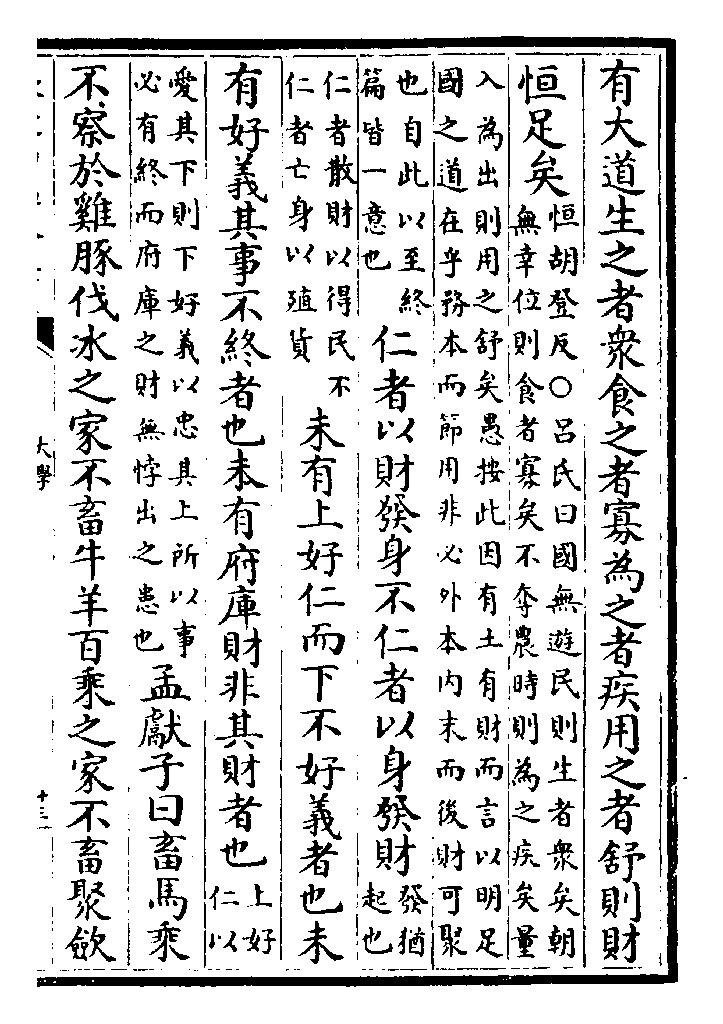 有大道生之者衆食之者寡為之者疾用之者舒則財
恒足矣
恒胡登反○呂氏曰國無遊民則生者衆矣朝
無幸位則食者寡矣不奪農時則為之疾矣量
入為出則用之舒矣愚按此因有土有財而言以明足
國之道在乎務本而節用非必外本内末而後財可聚
也自此以至終
篇皆一意也
仁者以財發身不仁者以身發財
發猶
起也
仁者散財以得民不
仁者亡身以殖貨
未有上好仁而下不好義者也未
有好義其事不終者也未有府庫財非其財者也
上好
仁以
愛其下則下好義以忠其上所以事
必有終而府庫之財無悖出之患也
孟獻子曰畜馬乘
不察於雞豚伐冰之家不畜牛羊百乘之家不畜聚斂
大學
十三